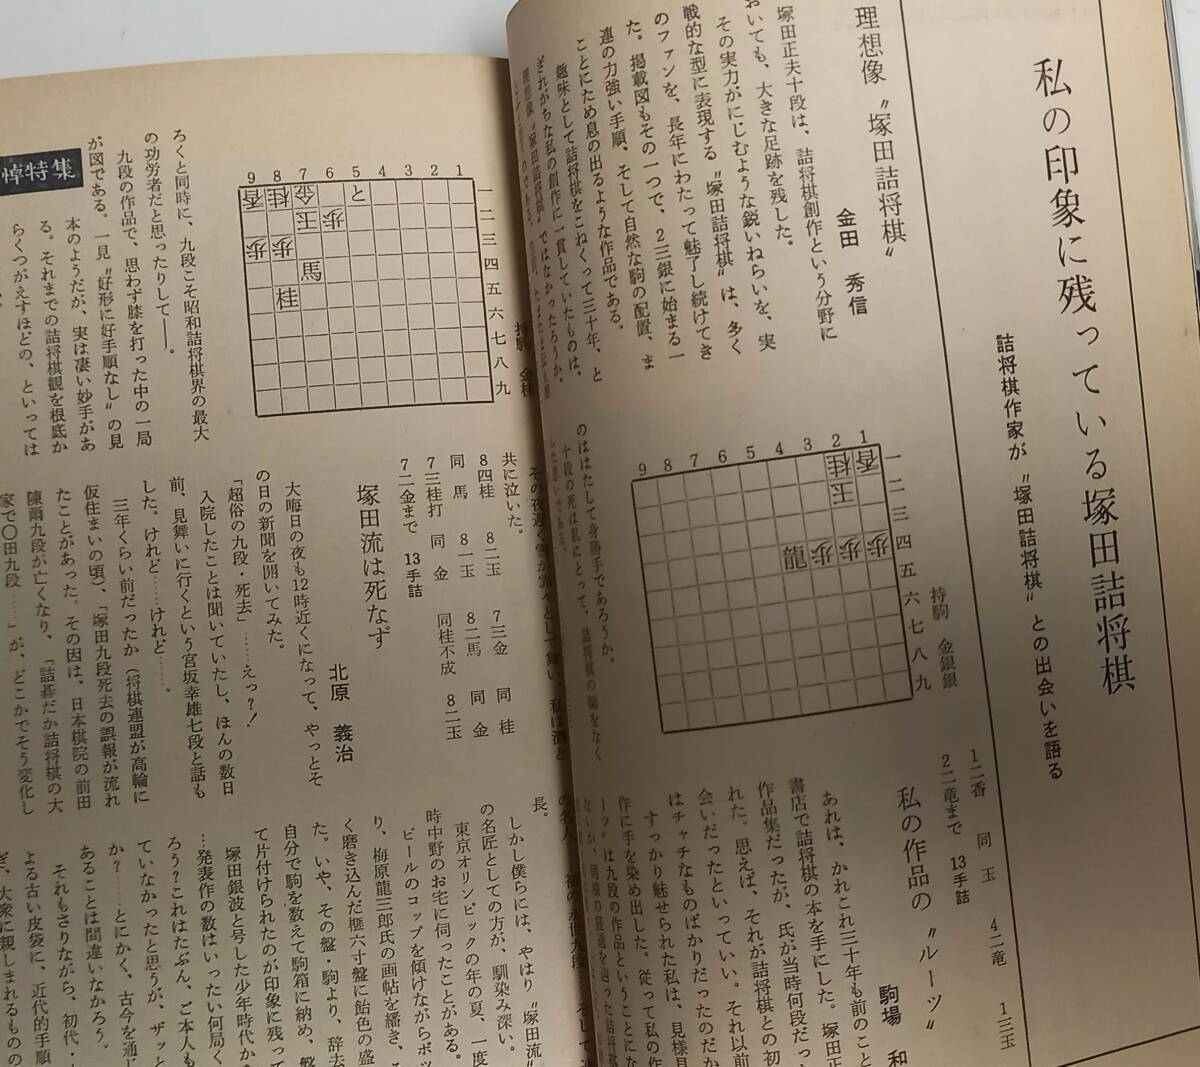 私の印象に残っている塚田詰将棋
詰将棋作家が〝塚田詰将棋〟との出会いを語る
理想像〝塚田詰将棋〟
金田 秀信
塚田正夫十段は、詰将棋創作という分野に
おいても、大きな足跡を残した。
その実力がにじむような鋭いねらいを、実
戦的な型に表現する〝塚田詰将棋〟は、多く
のファンを、長年にわたって魅了し続けてき
た。掲載図もその一つで、2三銀に始まる一
連の力強い手順、そして自然な駒の配置、ま
ことにため息の出るような作品である。
趣味として詰将棋をこねくって三十年、と
ぎれがちな私の創作に一貫していたものは、
理想像〝塚田詰将棋〟ではなかったろうか。
9 8 7 6 5 4 3 2 1
一二三四五六七八九
香
桂
玉
歩
歩
歩
龍
持駒 金銀銀
のははたして身勝手であろうか。
十段の死は私にとって、詰将棋の
1二香 同玉 4二竜 1三玉
2二竜まで 13手詰
私の作品の〝ルーツ〟
駒場 和
あれは、かれこれ三十年も前のこと
書店で詰将棋の本を手にした。塚田正
作品集だったが、氏が当時何段だっ
れた。思えば、それが詰将棋との初
会いだったといっていい。それ以前
はチャチなものばかりだったのだか
すっかり魅せられた私は、見様見
作に手を染め出した。従って私の作
ーツ〟は九段の作品ということにな
悼特集
ろくと同時に、九段こそ昭和詰将棋界の最大
の功労者だと思ったりして――。
九段の作品で、思わず膝を打った中の一局
が図である。一見〝好形に好手順なし〟の見
本のようだが、実は凄い妙手があ
る。それまでの詰将棋観を根底か
らくつがえすほどの、といっては
9 8 7 6 5 4 3 2 1
一二三四五六七八九
香
桂
金
と
玉
歩
歩
歩
馬
桂
持駒 金桂
その夜遅く雪が
私は酒と
共に泣いた。
8四桂 8二玉 7三金 同桂
同馬 8一玉 8二馬 同金
7三桂打 同金 同桂不成 8二玉
7二金まで 13手詰
塚田流は死なず
北原 義治
大晦日の夜も12時近くになって、やっとそ
の日の新聞を開いてみた。
「超俗の九段・死去」……えっ?!
入院したことは聞いていたし、ほんの数日
前、見舞いに行くという宮坂幸雄七段と話も
した。けれど……けれど……。
三年くらい前だったか（将棋連盟が高輪に
仮住まいの頃）、「塚田九段死去の誤報が流れ
たことがあった。その因は、日本棋院の前田
陳爾九段が亡くなり、「詰碁だか詰将棋の大
家で〇田九段……」が、どこかでそう変化し
長。
しかし僕らには、やはり〝塚田流〟
の名匠としての方が、馴染み深い。
東京オリンピックの年の夏、一度
時中野のお宅に伺ったことがある。
ビールのコップを傾けながらポッ
り、梅原龍三郎氏の画帖を繙き、
く磨き込んだ榧六寸盤に飴色の盛
た。いや、その盤・駒より、辞去
自分で駒を数えて駒箱に納め、盤
て片付けられたのが印象に残って
塚田銀波と号した少年時代か
…発表作の数はいったい何局く
ろう？これはたぶん、ご本人も
ていなかったと思うが、ザッと
か？……とにかく、古今を通じ
あることは間違いなかろう。
それもさりながら、初代・
よる古い皮袋に、近代的手順
ぎ、大衆に親しまれるものの